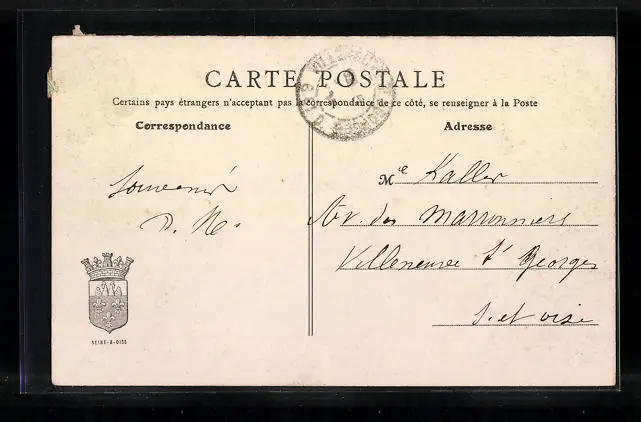 CARTE POSTALE
Certains pays étrangers n'acceptant pas la correspondance de ce côté, se renseigner à la Poste
Correspondance
Adresse
Souvenir
Mlle Kaller
Av. des Marronniers
Villeneuve St Georges
S. et oise
SEINE-&-OISE